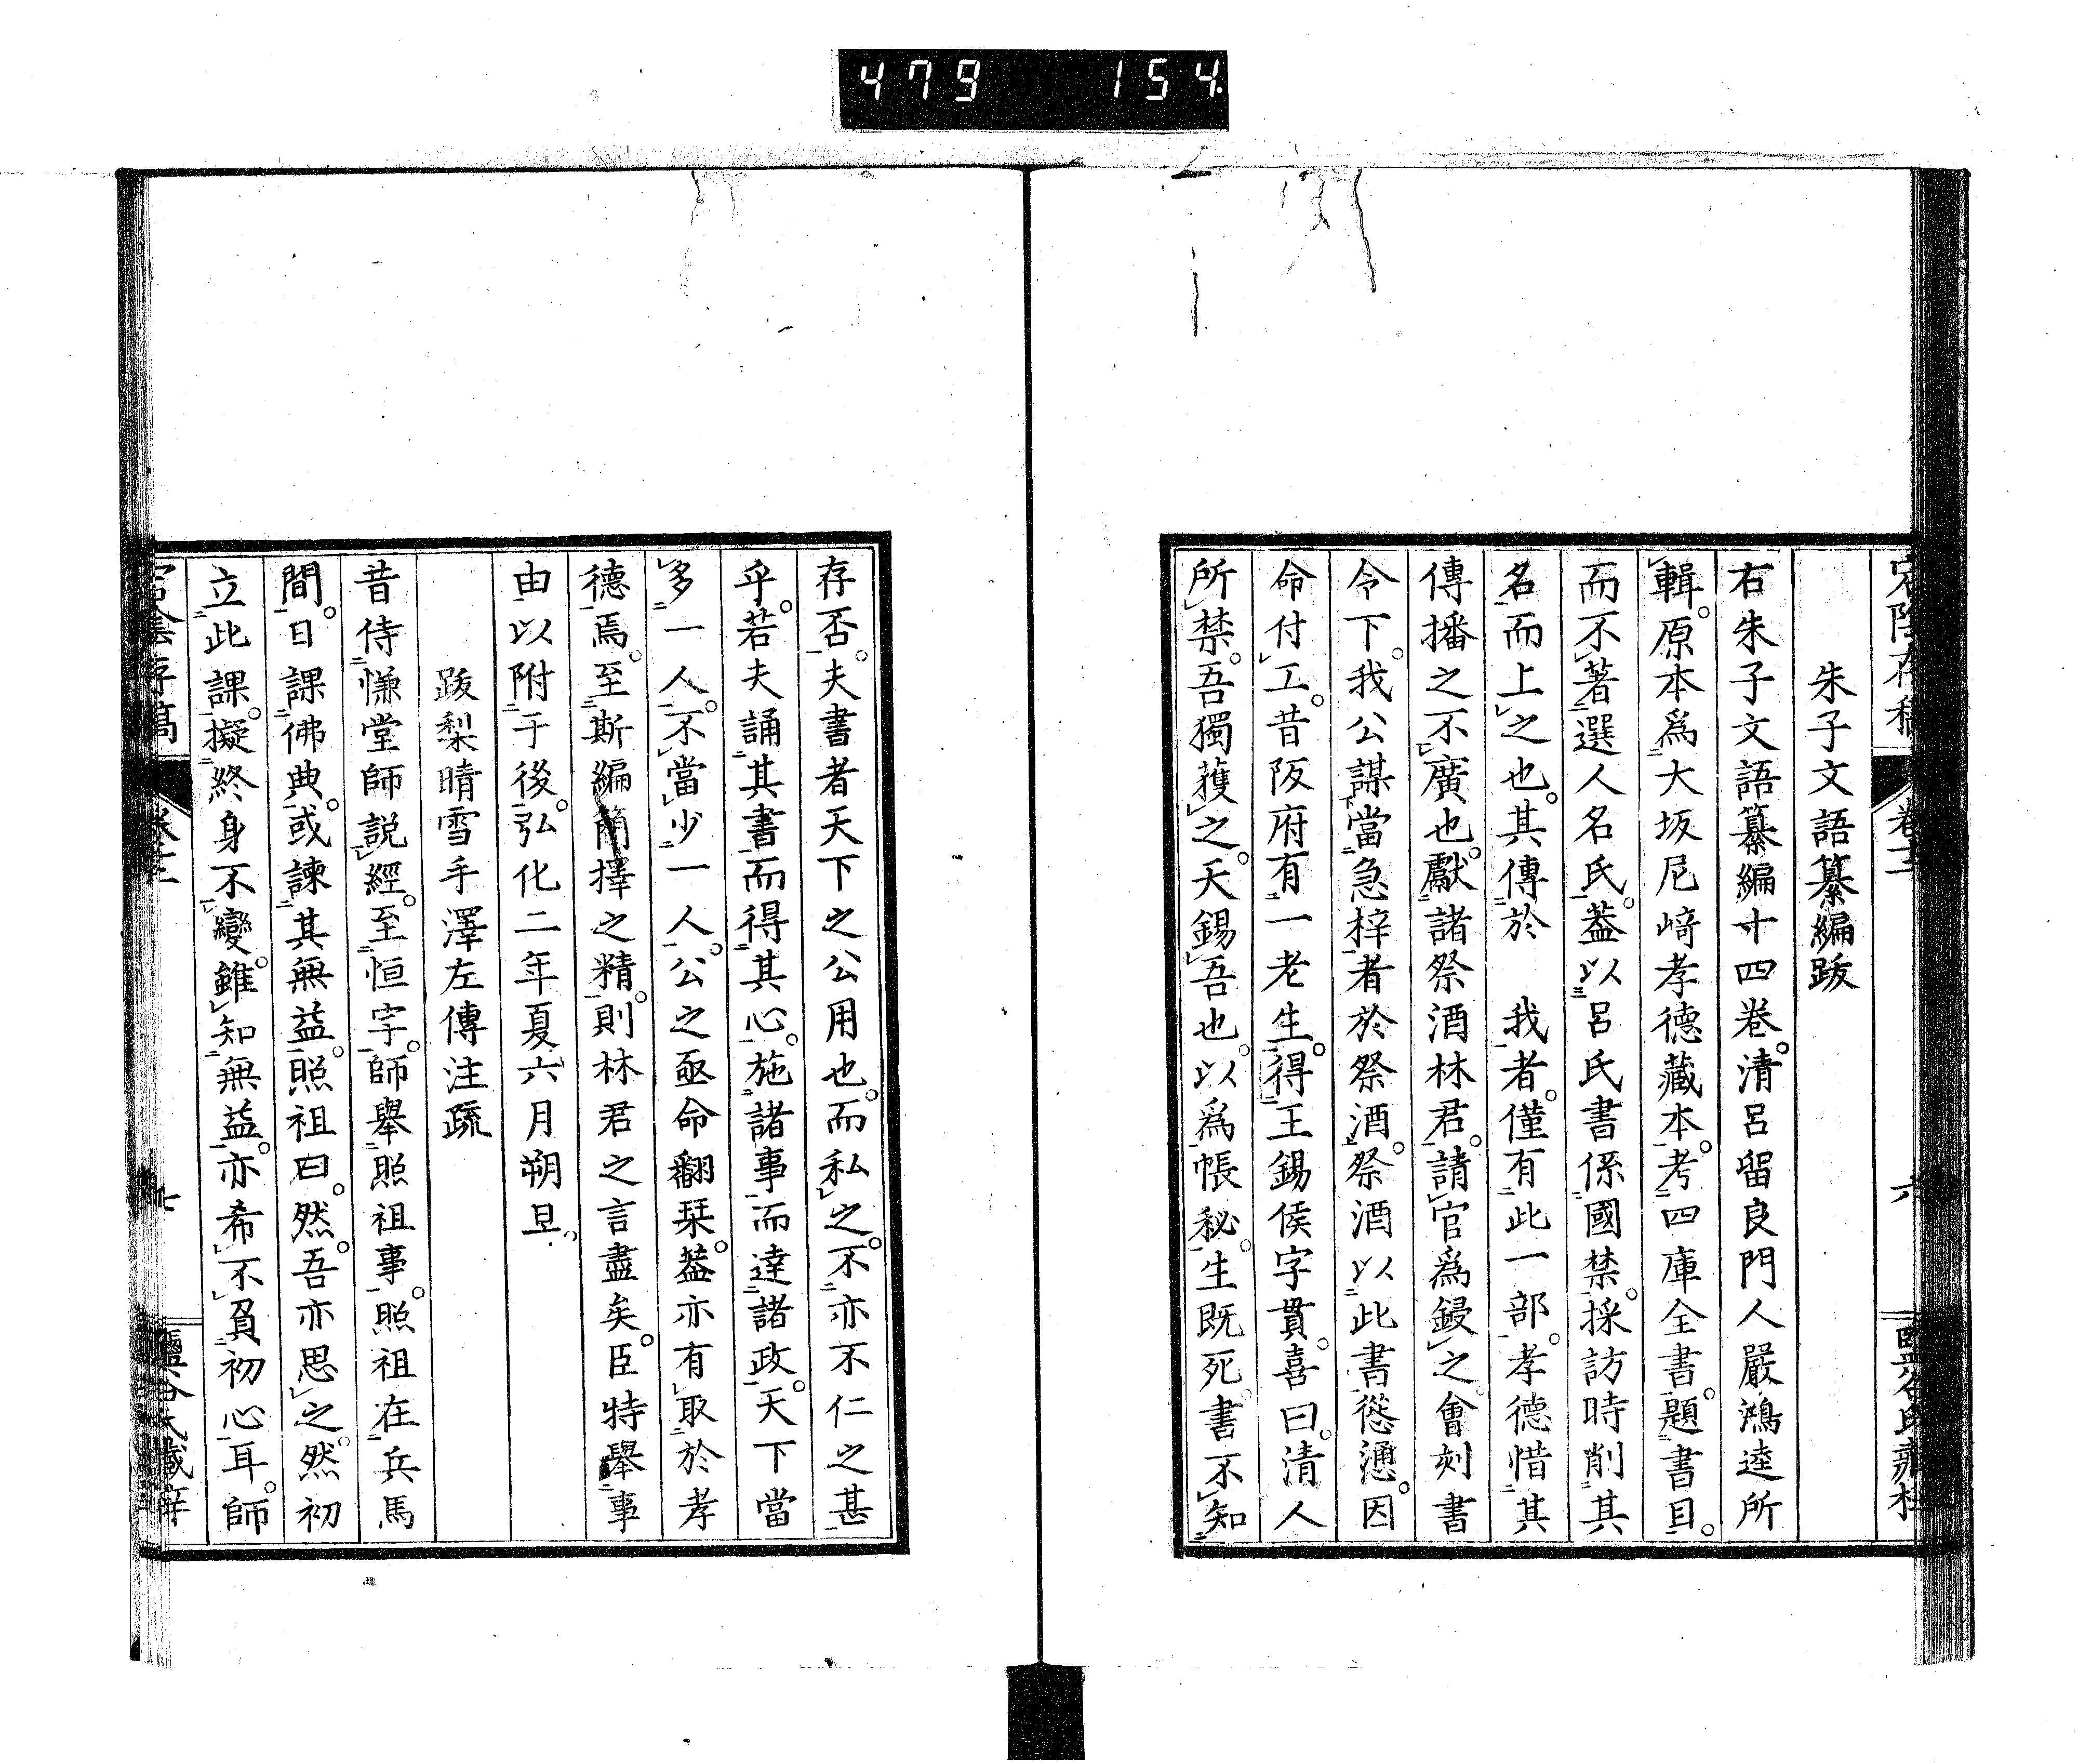 479 154.
朱子文語纂編跋
右朱子文語纂編十四卷。清呂留良門人嚴鴻逵所
輯。原本爲大坂尼﨑孝德藏本。考四庫全書。題書目。
而不著選人名氏。葢以呂氏書係國禁。採訪時削其
名而上之也。其傳於　我者。僅有此一部。孝德惜其
傳播之不廣也。獻諸祭酒林君。請官爲鋟之會刻書
令下。我公謀當急梓者於祭酒。祭酒以此書慫慂。因
命付工。昔阪府有一老生。得王錫侯字貫。喜曰。清人
所禁。吾獨獲之。天錫吾也。以爲帳秘。生既死。書不知
存否。夫書者天下之公用也。而私之。不亦不仁之甚
乎。若夫誦其書而得其心。施諸事而達諸政。天下當
多一人。不當少一人。公之亟命翻栞。葢亦有取於孝
德焉。至斯編簡擇之精。則林君之言盡矣。臣特舉事
由以附于後。弘化二年夏六月朔旦。
跋梨晴雪手澤左傳注疏
昔侍慊堂師説經。至恒字。師舉照祖事。照祖在兵馬
間。日課佛典。或諫其無益。照祖曰。然。吾亦思之。然初
立此課。擬終身不變。雖知無益。亦希不負初心耳。師